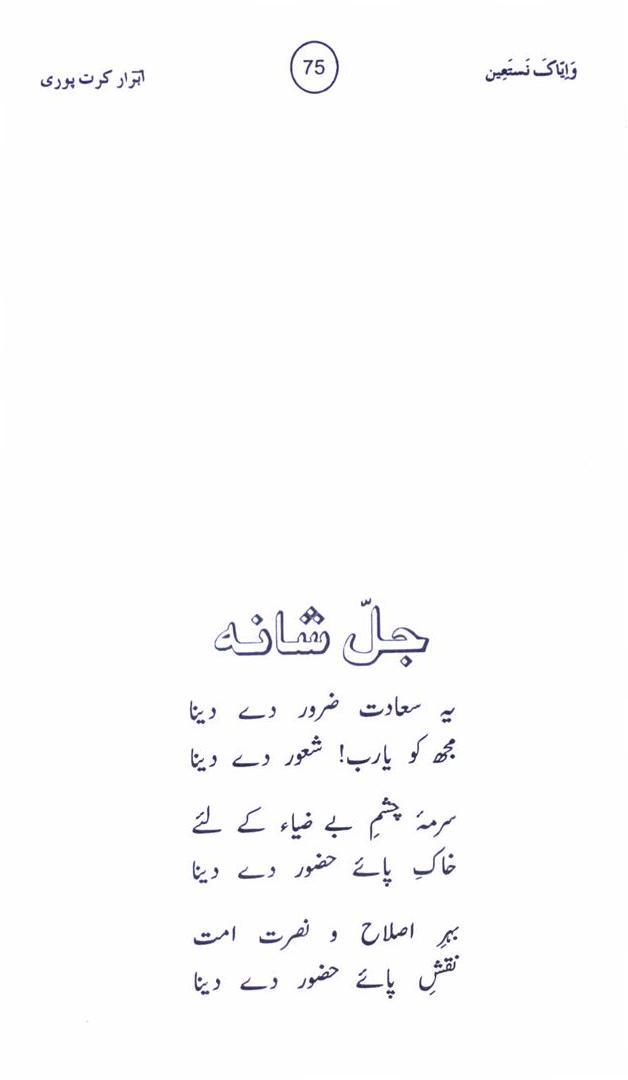 وَاِیّاکَ نَستَعِین
75
ابرار کرت پوری
جلّ شانہ
یہ سعادت ضرور دے دینا
مجھ کو یارب! شعور دے دینا
سرمۂ چشمِ بے ضیاء کے لئے
خاکِ پائے حضور دے دینا
بہرِ اصلاح و نصرت امت
نقشِ پائے حضور دے دینا